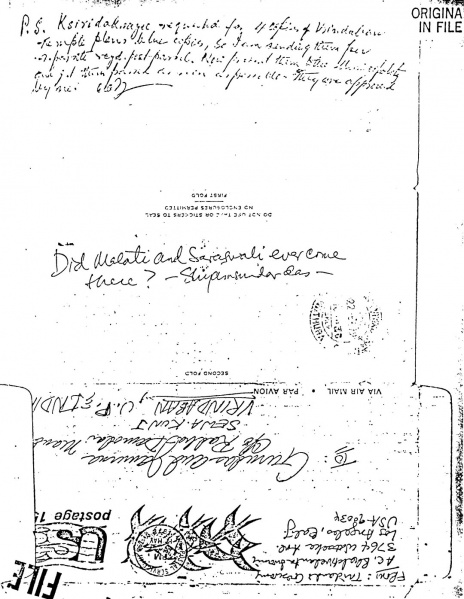 ORIGINA
IN FILE
P.S. Ksirodakasayee requested for 4 copies of Vrindaban
temple plans blue copies, so I am sending them per
separate regd. post parcel. Now present them to the Municipality
and get them passed as soon as possible. They are approved
by me.
DO NOT USE TAPE OR STICKERS TO SEAL
NO ENCLOSURES PERMITTED
FIRST FOLD
Did Malati and Saraswati ever come
there? - Shyamsundar das -
SECOND FOLD
VIA AIR MAIL • PAR AVION
To: Gurudas and Jamuna
c/o Radha Damodar
SEVA KUNJ
VRINDABAN, U.P. INDI
From: Tridandi Goswami
A.C. Bhaktivedanta Swami
3764 Watseka Ave.
Los Angeles Calif
USA 90034
US
postage 15
FILE